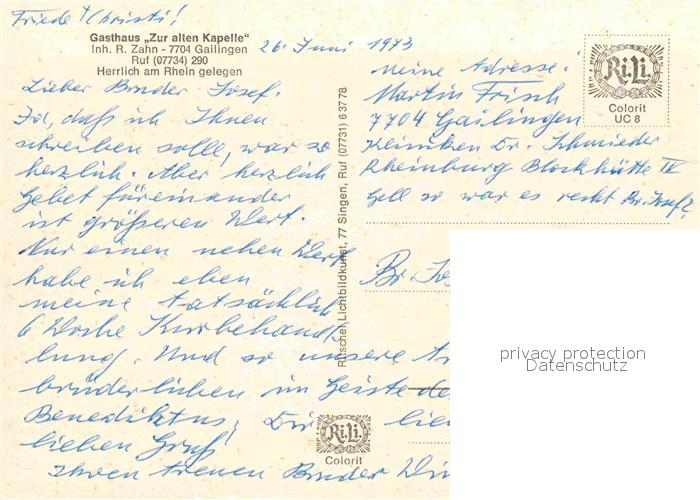 Friede + Christi!
Gasthaus „Zur alten Kapelle“
Inh. R. Zahn - 7704 Gailingen
Ruf (07734) 290
Herrlich am Rhein gelegen
26. Juni 1973
Lieber Bruder Josef.
Ja, daß ich Ihnen
schreiben solle, war so
herzlich. Aber herzlich
Gebet füreinander
ist größeren Wert.
Nur einen nehen Wert
habe ich eben
meine tatsächlich
6 Woche Kurbehand
lung. Und so unsere
brüderlichen im Geiste des
Benediktus. Dir lie
lieben Gruß!
Ihren treuen Bruder
Meine Adresse:
Martin Frisch
7704 Gailingen
Kliniken Dr. Schmieder
Rheinburg Blockhütte IV
Gell so war es recht Br. Josef?
Br. Jos
Ritschel Lichtbildkunst, 77 Singen, Ruf (07731) 6 37 78
Ri.Li.
Colorit
UC 8
Ri.Li.
Colorit
privacy protection
Datenschutz